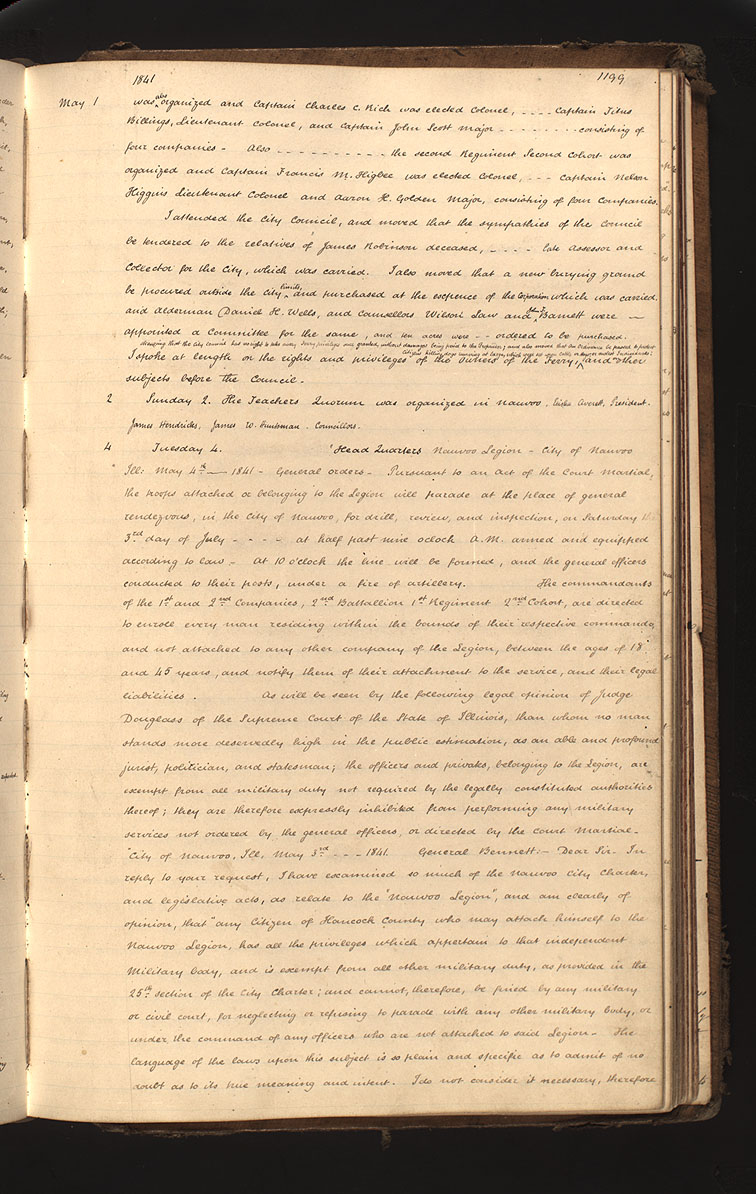 1841
1199
May 1 was also organized and Captain Charles C. Rich was elected Colonel, - - - - Captain Titus
Billings, Lieutenant Colonel, and Captain John Scott Major - - - - - - - - consisting of
four companies - Also - - - - - - - - - - - the second Regiment Second Cohort was
organized and Captain Francis M. Higbee was elected Colonel, - - - Captain Nelson
Higgins Lieutenant Colonel and Aaron H. Golden Major, consisting of four Companies.
I attended the City Council, and moved that the sympathies of the Council
be tendered to the relatives of James Robinson deceased, - - - - late Assessor and
Collector for the City, which was carried. I also moved that a new burying ground
be procured outside the City limits, and purchased at the expence of the Corporation which was carried.
and Alderman Daniel H. Wells, and Councillors Wilson Law and John T. Barnett were —
appointed a Committee for the same, and ten acres were - - ordered to be purchased.
I spoke at length on the rights and privileges of the Owners of the Ferry,
showing that the City Council has no right to take away Ferry privileges once granted, without damages being paid to the Proprietor; and also moved that an Ordinance be passed to protect
Citizens killing dogs running at large, which were set upon Cattle, or
and other
subjects before the Council.
2 Sunday 2. The Teachers Quorum was organized in Nauvoo, Elisha Averett, President.
James Hendricks, James W. Huntsman, Councillors.
4 Tuesday 4. "Head Quarters Nauvoo Legion - City of Nauvoo
Ill: May 4th — 1841 - General orders - Pursuant to an act of the Court Martial,
the troops attached or belonging to the Legion will parade at the place of general
rendezvous, in the City of Nauvoo, for drill, review, and inspection, on Saturday the
3rd day of July - - - - at half past nine oclock A.M. armed and equipped
according to law - At 10 o'clock the line will be formed, and the general officers
conducted to their posts, under a fire of artillery. The commandants
of the 1st and 2nd Companies, 2nd Battallion 1st Regiment 2nd Cohort, are directed
to enroll every man residing within the bounds of their respective commands,
and not attached to any other company of the Legion, between the ages of 18
and 45 years, and notify them of their attachment to the service, and their legal
liabilities. As will be seen by the following legal opinion of Judge
Douglass of the Supreme Court of the State of Illinois, than whom no man
stands more deservedly high in the public estimation, as an able and profound
jurist, politician, and statesman; the officers and privates, belonging to the Legion, are
exempt from all military duty not required by the legally constituted authorities
thereof; they are therefore expressly inhibited from performing any military
services not ordered by the general officers, or directed by the court Martial -
"City of Nauvoo, Ill, May 3rd - - - 1841. General Bennett:- Dear Sir - In
reply to your request, I have examined so much of the Nauvoo City Charter,
and legislative acts, as relate to the "Nauvoo Legion", and am clearly of
opinion, that "any Citizen of Hancock County who may attach himself to the
Nauvoo Legion, has all the privileges which appertain to that independent
Military body, and is exempt from all other military duty, as provided in the
25th section of the City Charter; and cannot, therefore, be fined by any military
or civil court, for neglecting or refusing to parade with any other military body, or
under the command of any officers who are not attached to said Legion - The
language of the laws upon this subject is so plain and specific as to admit of no
doubt as to its true meaning and intent. I do not consider it necessary, therefore